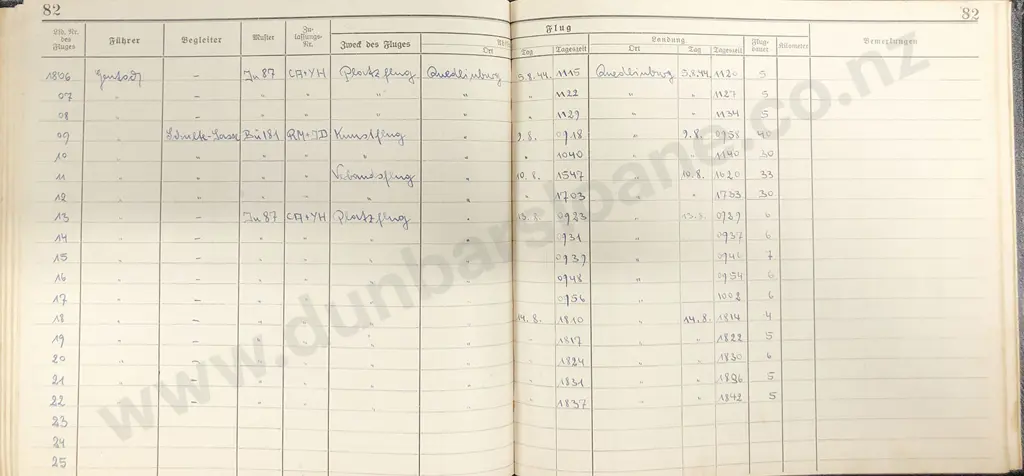 82 82
Lfd. Nr. des Fluges Führer Begleiter Muster Zulassungs-Nr. Zweck des Fluges Flug
Ort Tag Tageszeit Landung Ort Tag Tageszeit Flugdauer Kilometer Bemerkungen
1806 - Ju 87 +YH Platzflug Quedlinburg 5.8.44. 1115 Quedlinburg 5.8.44. 1120 5
07 " - " " " " " 1122 " " 1127 5
08 " - " " " " " 1129 " " 1134 5
09 " Bü 181 RM+JD Kunstflug " 9.8. 0918 " 9.8. 0958 40
10 " " " " " " " " " 1140 30
11 " " " " Verbandsflug " 10.8. 1547 " 10.8. 1620 33
12 " " " " " " " 1703 " " 1733 30
13 " - Ju 87 +YH Platzflug " 13.8. 0923 " 13.8. 6
14 " - " " " " " 0931 " " 0937 6
15 " - " " " " " 0939 " " 7
16 " - " " " " " 0948 " " 0954 6
17 " - " " " " " 0956 " " 1002 6
18 " - " " " " 14.8. 1810 " 14.8. 1814 4
19 " - " " " " " 1817 " " 1822 5
20 " - " " " " " 1824 " " 1830 6
21 " - " " " " " 1831 " " 1836 5
22 " - " " " " " 1837 " " 1842 5
23
24
25
www.dunbarsloane.co.nz